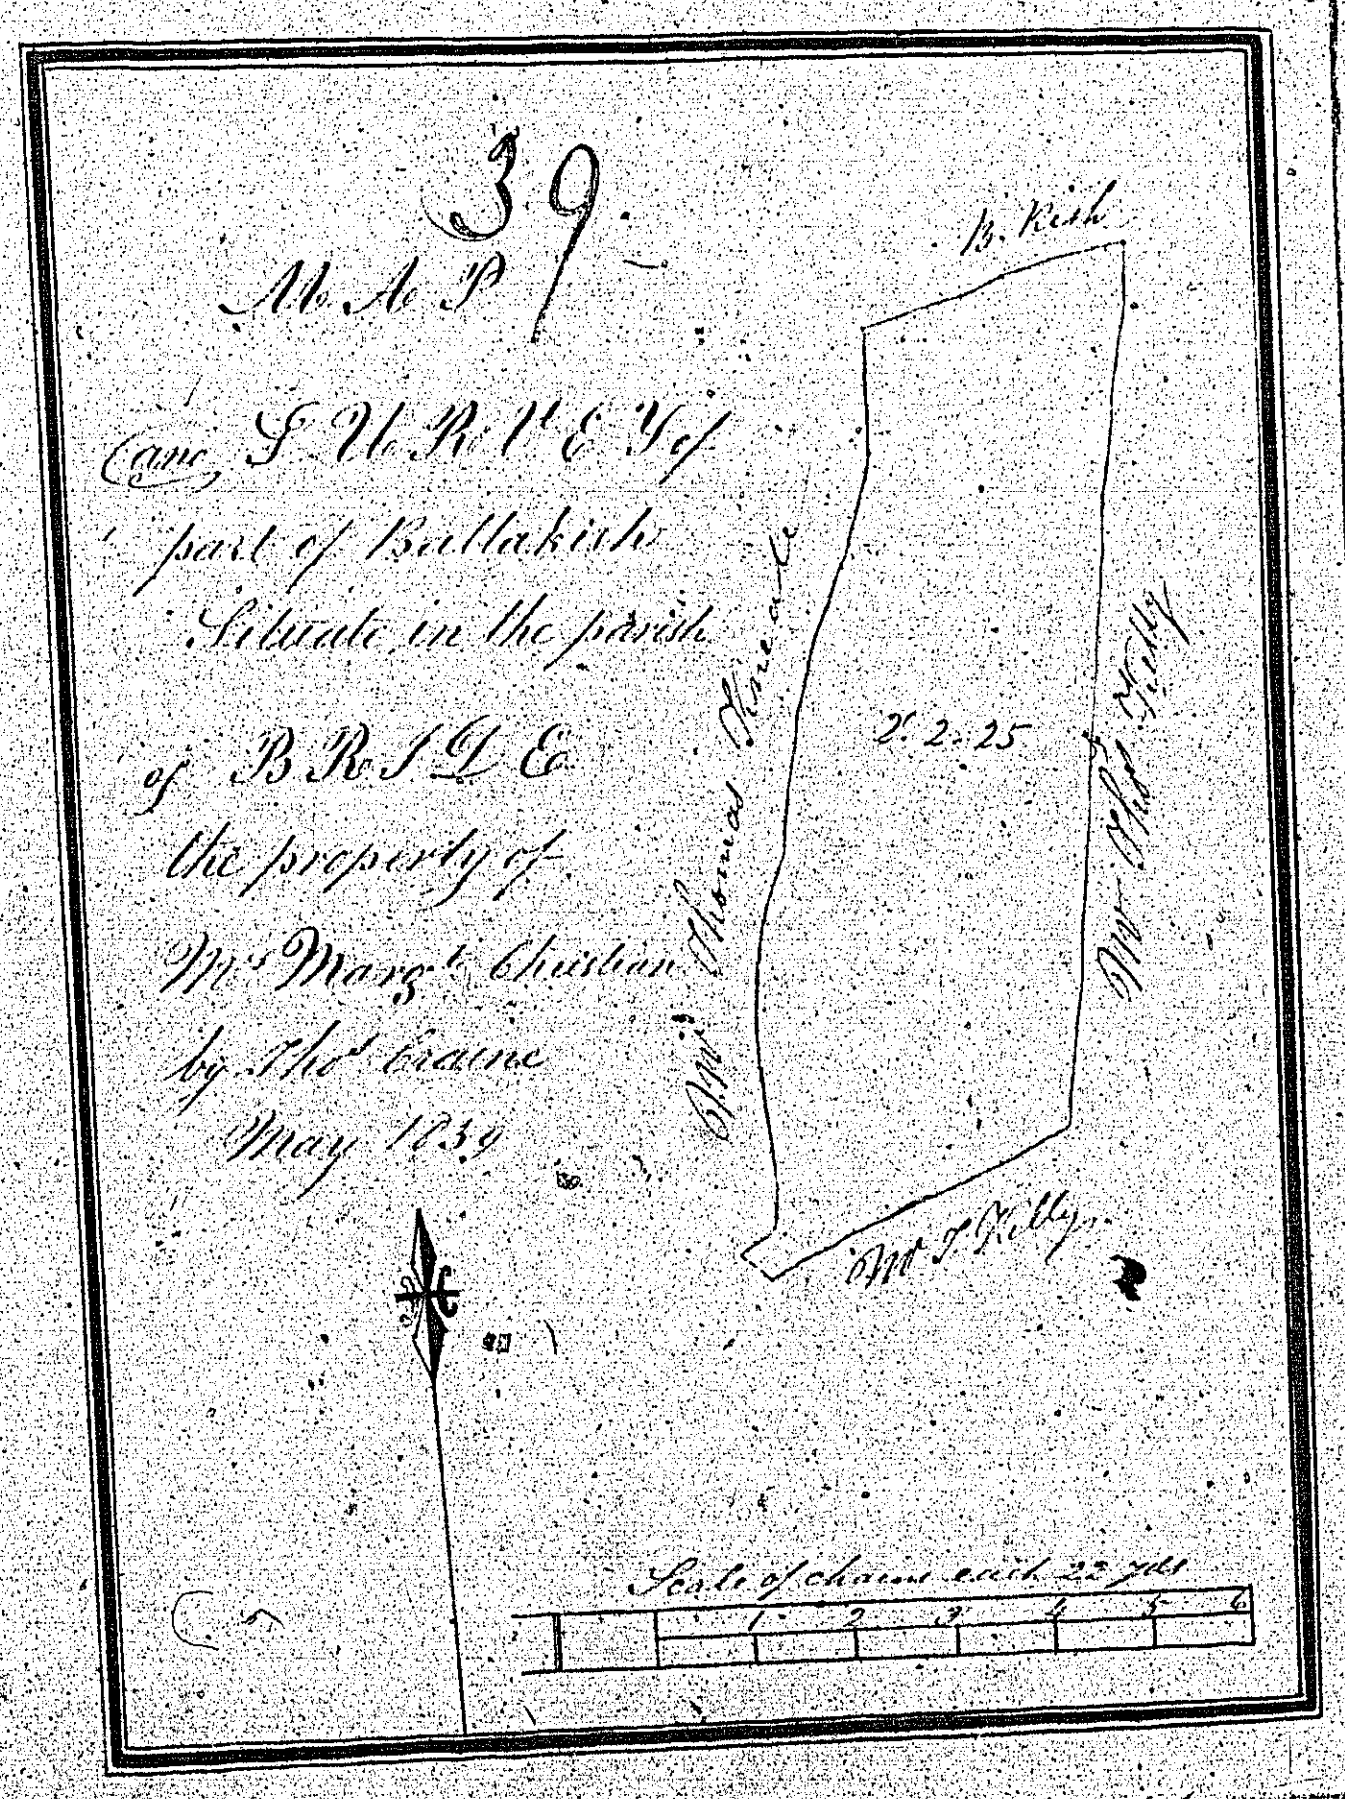 39.
MAP
and SURVEY of
part of Ballakish
Situate in the parish
of BRIDE
the property of
Mrs Margt Christian
by Thos Craine
May 1839
B. Kish
Mr Thomas Kneale
2. 2. 25
Mr Thos Kelly
Mr T. Kelly
Scale of chains each 22 yds
1 2 3 4 5 6